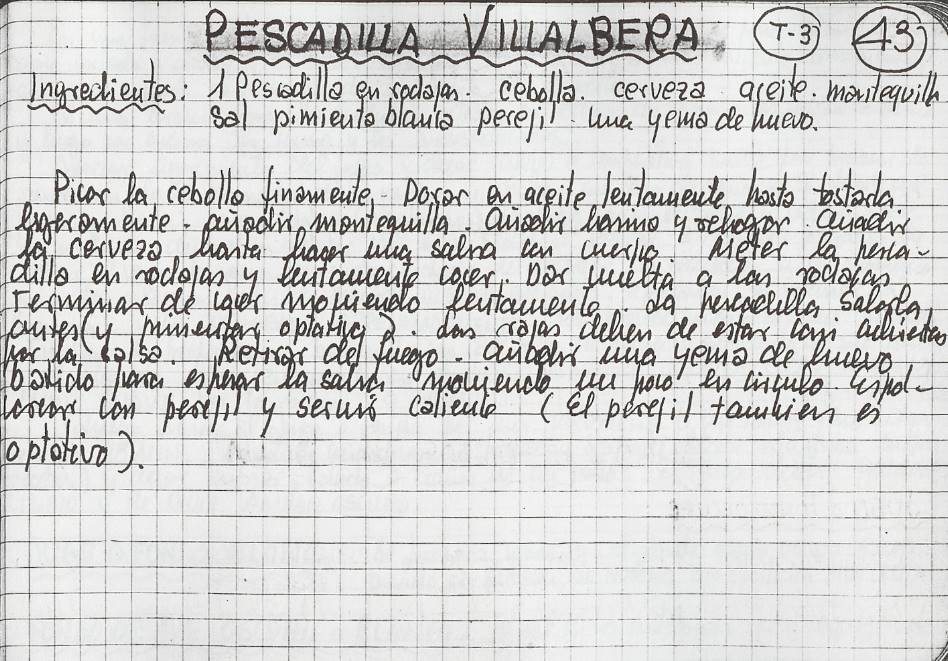 PESCADILLA VILLALBERA T-3 43
Ingredientes: 1 Pescadilla en rodajas. cebolla. cerveza aceite. mantequilla
Sal pimienta blanca perejil. una yema de huevo.
Picar la cebolla finamente. Dorar en aceite lentamente hasta tostarla
ligeramente. añadir mantequilla. Añadir harina y rehogar. Añadir
la cerveza hasta hacer una salsa con cuerpo. Meter la pesca-
dilla en rodajas y lentamente cocer. Dar vuelta a las rodajas
Terminar de cocer moviendo lentamente. La pescadilla Salarla
antes (y pimentar optativo). Las rajas deben de estar casi cubiertas
por la salsa. Retirar del fuego. añadir una yema de huevo
batido para espesar la salsa moviendo un poco en círculo. Espol-
vorear con perejil y servir caliente (El perejil tambien es
optativo).